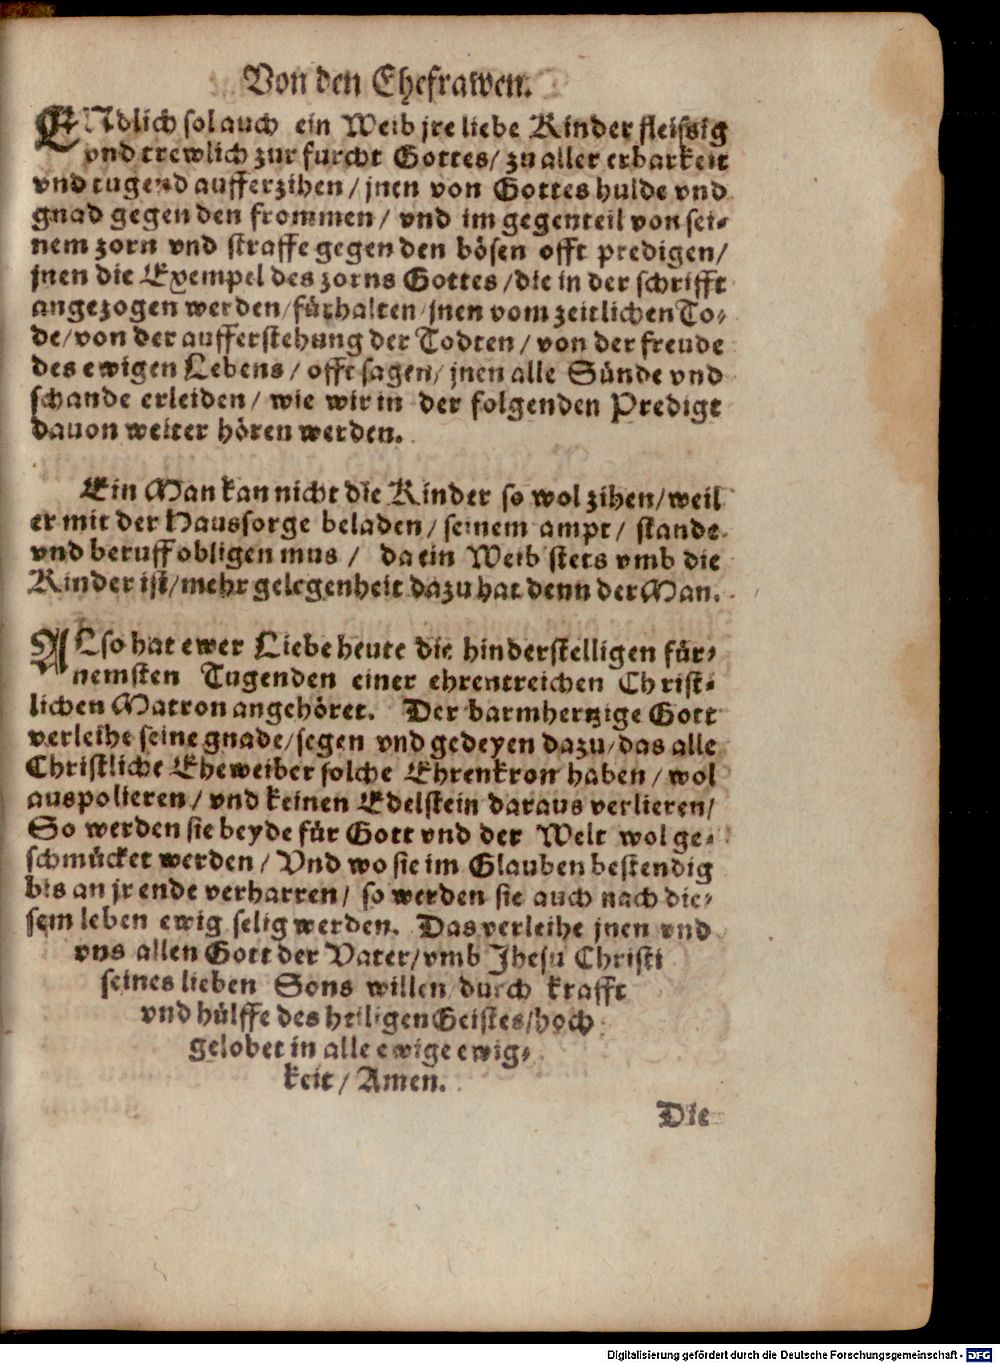 Von den Ehefrawen.
ENdlich sol auch ein Weib jre liebe Kinder fleissig
vnd trewlich zur furcht Gottes/ zu aller erbarkeit
vnd tugend aufferzihen/ jnen von Gottes hulde vnd
gnad gegen den frommen/ vnd im gegenteil von sei-
nem zorn vnd straffe gegen den bösen offt predigen/
jnen die Exempel des zorns Gottes/ die in der schrifft
angezogen werden/ fürhalten/ jnen vom zeitlichen To-
de/ von der aufferstehung der Todten/ von der freude
des ewigen Lebens/ offt sagen/ jnen alle Sünde vnd
schande erleiden/ wie wir in der folgenden Predigt
dauon weiter hören werden.
Ein Man kan nicht die Kinder so wol zihen/ weil
er mit der Haussorge beladen/ seinem ampt/ stande
vnd beruff obligen mus/ da ein Weib stets vmb die
Kinder ist/ mehr gelegenheit dazu hat denn der Man.
ALso hat ewer Liebe heute die hinderstelligen für-
nemsten Tugenden einer ehrentreichen Christ-
lichen Matron angehöret. Der barmhertzige Gott
verleihe seine gnade/ segen vnd gedeyen dazu/ das alle
Christliche Eheweiber solche Ehrenkron haben/ wol
auspolieren/ vnd keinen Edelstein daraus verlieren/
So werden sie beyde für Gott vnd der Welt wol ge-
schmücket werden/ Vnd wo sie im Glauben bestendig
bis an jr ende verharren/ so werden sie auch nach die-
sem leben ewig selig werden. Das verleihe jnen vnd
vns allen Gott der Vater/ vmb Jhesu Christi
seines lieben Sons willen/ durch krafft
vnd hülffe des heiligen Geistes/ hoch
gelobet in alle ewige ewig-
keit/ Amen.
Die
Digitalisierung gefördert durch die Deutsche Forschungsgemeinschaft - DFG